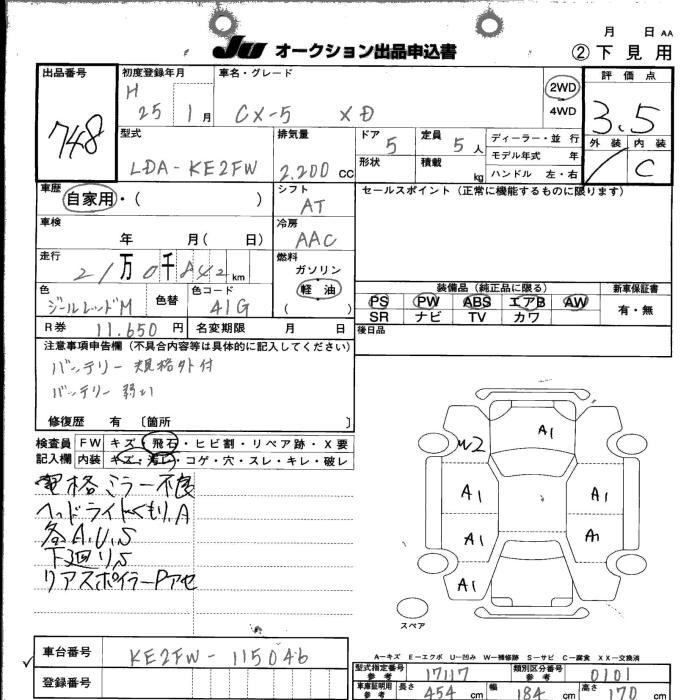 月 日 AA
JU オークション出品申込書
② 下見用
出品番号
748
初度登録年月
H 25 1月
車名・グレード
CX-5 XD
2WD
4WD
評価点
3.5
外装 内装
C
型式
LDA-KE2FW
排気量
2.200 CC
ドア 5
定員 5 人
形状
積載 kg
ディーラー・並行
モデル年式 年
ハンドル 左・右
車歴
自家用・( )
シフト
AT
セールスポイント(正常に機能するものに限ります)
車検
年 月( 日)
冷房
AAC
走行
21万0千842 km
燃料
ガソリン
軽油
( )
色
ジールレッドM
色替
色コード
41G
装備品(純正品に限る)
PS PW ABS エアB AW
SR ナビ TV カワ
新車保証書
有・無
R券 11.650 円
名変期限 月 日
後日品
注意事項申告欄(不具合内容等は具体的に記入してください)
バッテリー 規格外付
バッテリー 弱い
修復歴 有 〔箇所 〕
検査員
記入欄
FW キズ・飛石・ヒビ割・リペア跡・X要
内装 キズ・汚レ・コゲ・穴・スレ・キレ・破レ
電格ミラー不良
ヘッドライトくもり.A
各A.U.S
下廻りS
リアスポイラーPアセ
A1
W2
A1
A1
A1
A1
A1
スペア
車台番号
KE2FW-115046
登録番号
A-キズ E-エクボ U-凹み W-補修跡 S-サビ C-腐食 XX-交換済
型式指定番号
参考
17117
類別区分番号
参考
0101
車庫証明用
参考
長さ 454 cm
幅 184 cm
高さ 170 cm